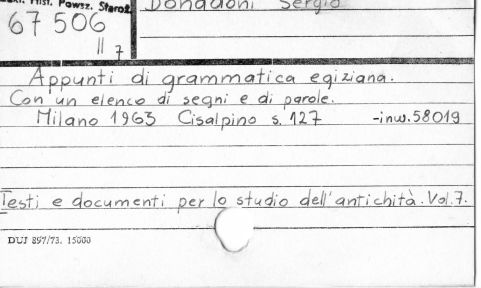 Hist. Powsz. Staroż.
Donadoni Sergio
67506
II 7
Appunti di grammatica egiziana.
Con un elenco di segni e di parole.
Milano 1963 Cisalpino s. 127 -inw. 58019
Testi e documenti per lo studio dell'antichità. Vol. 7.
DUJ 897/73. 15000